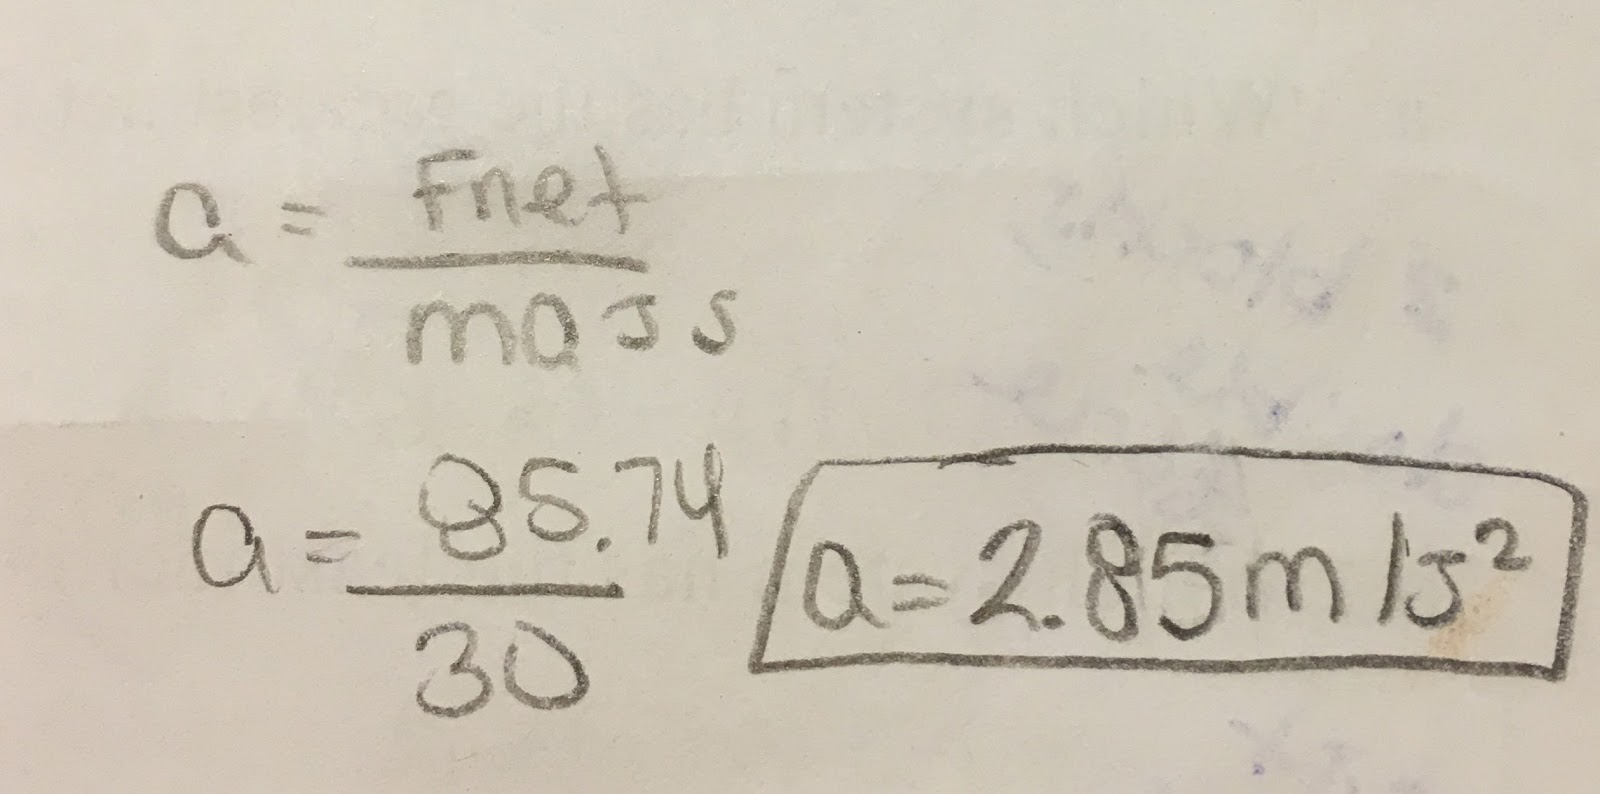 a = Fnet / mass
a = 85.74 / 30
a = 2.85 m/s²